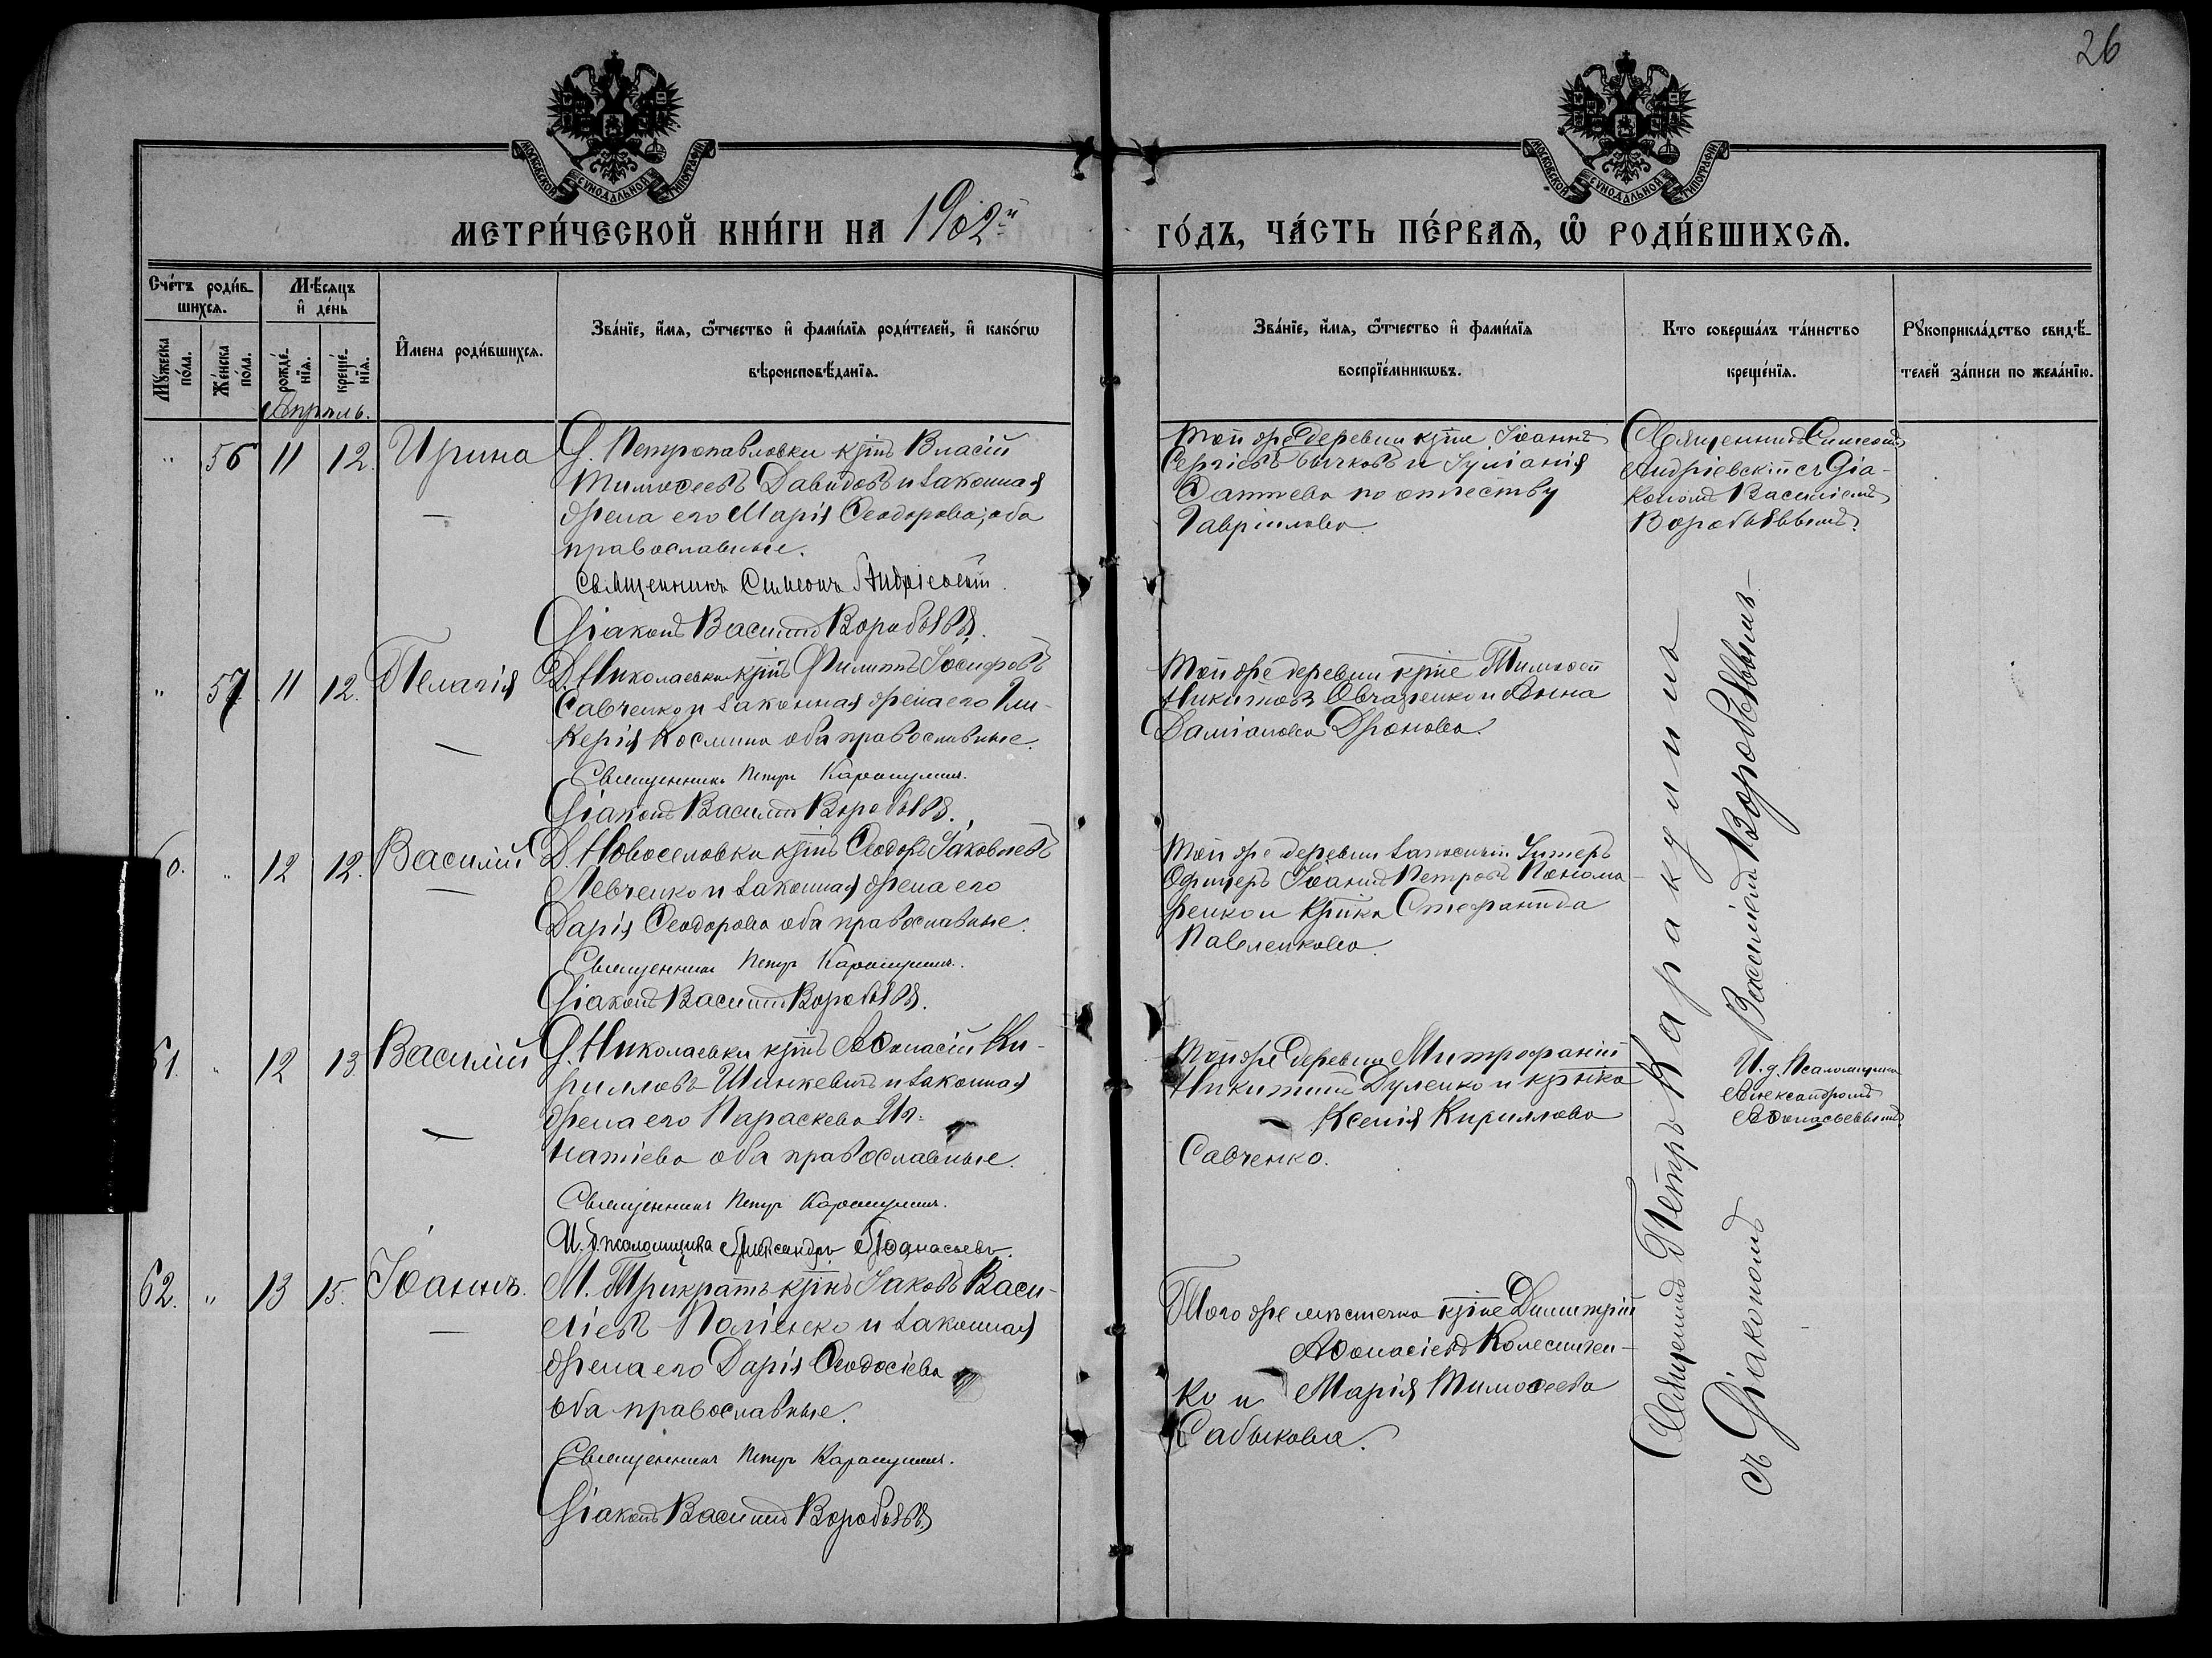 26
МОСКОВСКОЙ СѴНОДАЛЬНОЙ ТИПОГРАФІИ
МОСКОВСКОЙ СѴНОДАЛЬНОЙ ТИПОГРАФІИ
МЕТРИ́ЧЕСКОЙ КНИ́ГИ НА 1902й
ГО́ДЪ, ЧА́СТЬ ПЕ́РВАѦ, Ѡ҆ РОДИ́ВШИХСѦ.
Сче́тъ роди́в-
шихсѧ.
Мѣ́сѧцъ
и҆ де́нь
Мꙋ́жеска
по́ла.
Же́нска
по́ла.
рожде́-
нїѧ.
креще́-
нїѧ.
И҆мена роди́вшихсѧ.
Зва́нїе, и҆́мѧ, ѻ҆́тчество и҆ фами́лїѧ роди́телей, и҆ како́гѡ
вѣроисповѣ́данїѧ.
Зва́нїе, и҆́мѧ, ѻ҆́тчество и҆ фами́лїѧ
воспрїе́мникѡвъ.
Кто соверша́лъ та́инство
креще́нїѧ.
Рꙋкоприкла́дство свидѣ́-
телей за́писи по жела́нїю.
Апрѣль.
" 56 11 12. Ирина
Д. Петропавловки кр҃нъ Власій
Тимоѳеевъ Давидовъ и законная
жена его Марія Ѳеодорова; оба
православные.
Священникъ Симеонъ Андріевскій.
Діаконъ Василій Воробьевъ.
Той же деревни кр҃не Іоаннъ
Сергіевъ Бычковъ и Іуліанія
по отчеству
Гавріилова.
Священникъ Симеонъ
Андріевскій съ Діа-
кономъ Василіемъ
Воробьевымъ.
" 57 11 12. Пелагія
Д. Николаевки кр҃нъ Филиппъ Іосифовъ
Савченко и законная жена его Гли-
керія Космина оба православные.
Священникъ Петръ Каракулинъ.
Діаконъ Василій Воробьевъ.
Той же деревни кр҃не Тимоѳей
Никитовъ Овчаренко и Анна
Даміанова Дронова.
60. " 12 12. Василій
Д. Новоселовки кр҃нъ Ѳеодоръ Іаковлевъ
Левченко и законная жена его
Дарія Ѳеодорова оба православные.
Священникъ Петръ Каракулинъ.
Діаконъ Василій Воробьевъ.
Той же деревни запасный Унтеръ
Офицеръ Іоаннъ Петровъ Понома-
ренко и кр҃нка Стефанида
Павленкова.
61. " 12 13. Василій
Д. Николаевки кр҃нъ Аѳанасій Ки-
рилловъ Шинкевичъ и законная
жена его Параскева Иг-
натіева оба православные.
Священникъ Петръ Каракулинъ.
И. д. псаломщика Александръ Аѳанасьевъ.
Той же деревни Митрофаній
Никитинъ Дуленко и кр҃нка
Ксенія Кириллова
Савченко.
И. д. Псаломщика
Александромъ
Аѳанасьевымъ
62. " 13 15. Іоаннъ.
М. Трикратъ кр҃нъ Іаковъ Васи-
ліевъ и законная
жена его Дарія Ѳеодосіева
оба православные.
Священникъ Петръ Каракулинъ.
Діаконъ Василій Воробьевъ.
Того же мѣстечка кр҃не Димитрій
Аѳанасіевъ Колесничен-
ко и Марія Тимоѳеева
Сабыкова.
Священникъ Петръ Каракулинъ
съ Діакономъ Василіемъ Воробьевымъ